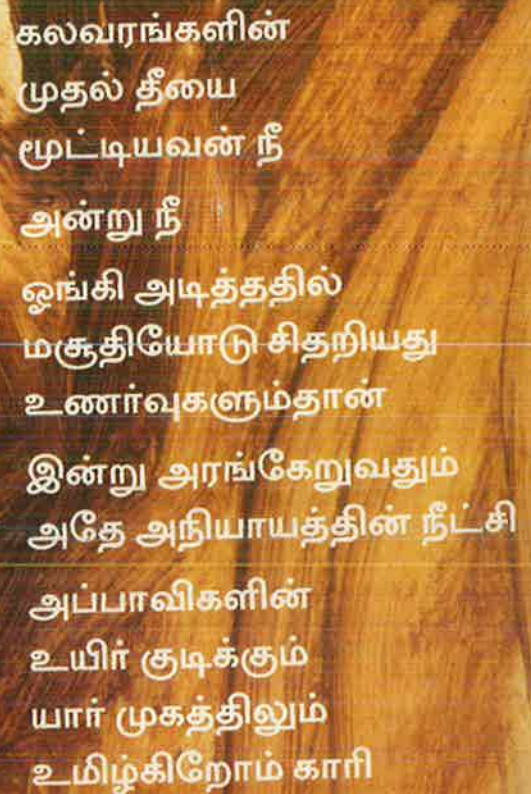 கலவரங்களின்
முதல் தீயை
மூட்டியவன் நீ
அன்று நீ
ஓங்கி அடித்ததில்
மசூதியோடு சிதறியது
உணர்வுகளும்தான்
இன்று அரங்கேறுவதும்
அதே அநியாயத்தின் நீட்சி
அப்பாவிகளின்
உயிர் குடிக்கும்
யார் முகத்திலும்
உமிழ்கிறோம் காரி